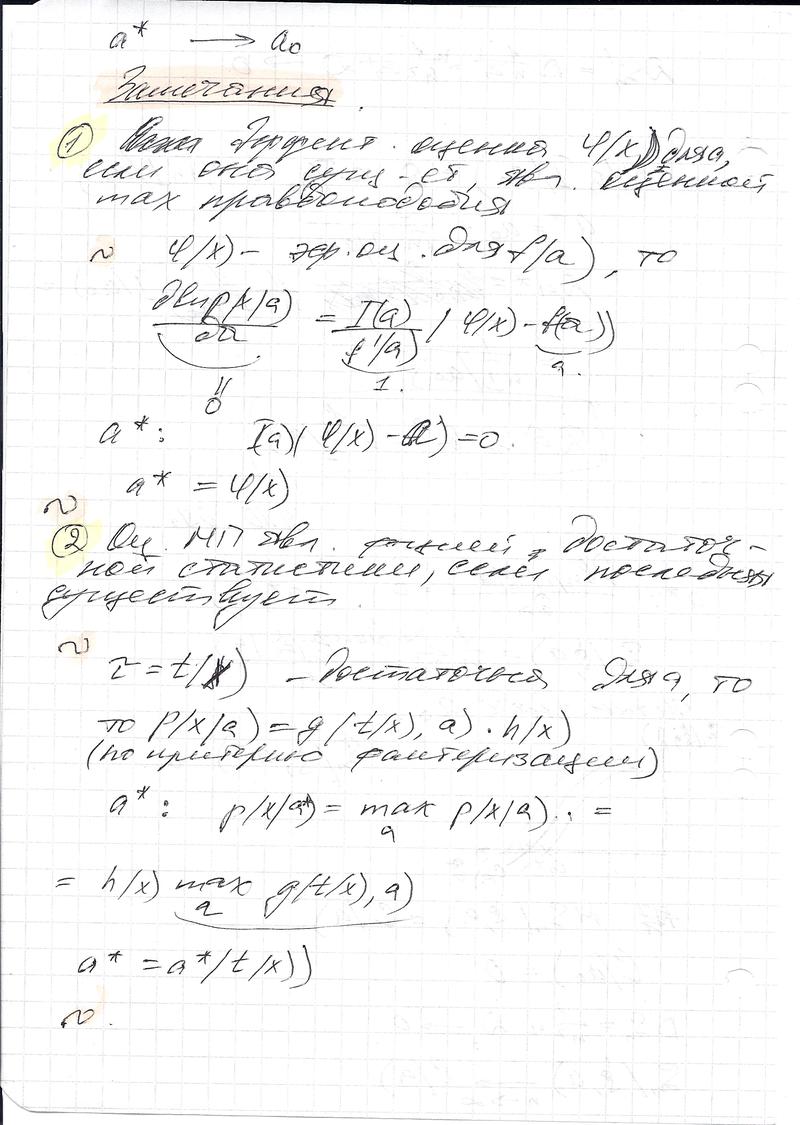 a* → a₀
Замечания.
① эффект. оценка φ(x) для a,
если она сущ-ет, явл. оценкой
max правдоподобия
~ φ(x) – эф. оц. для f(a), то
∂ln p(x/a) / ∂a = I(a) / f'(a) (φ(x) – f(a))
0 1. a.
a*: I(a)(φ(x) – a) = 0.
a* = φ(x)
~
② Оц. МП явл. функцией достаточ-
ной статистики, если последняя
существует.
~
τ = t(x) – достаточная для a, то
то p(x/a) = g(t(x), a) · h(x)
(по критерию факторизации)
a*: p(x/a*) = max p(x/a) . =
a
= h(x) max g(t(x), a)
a
a* = a*(t(x))
~.